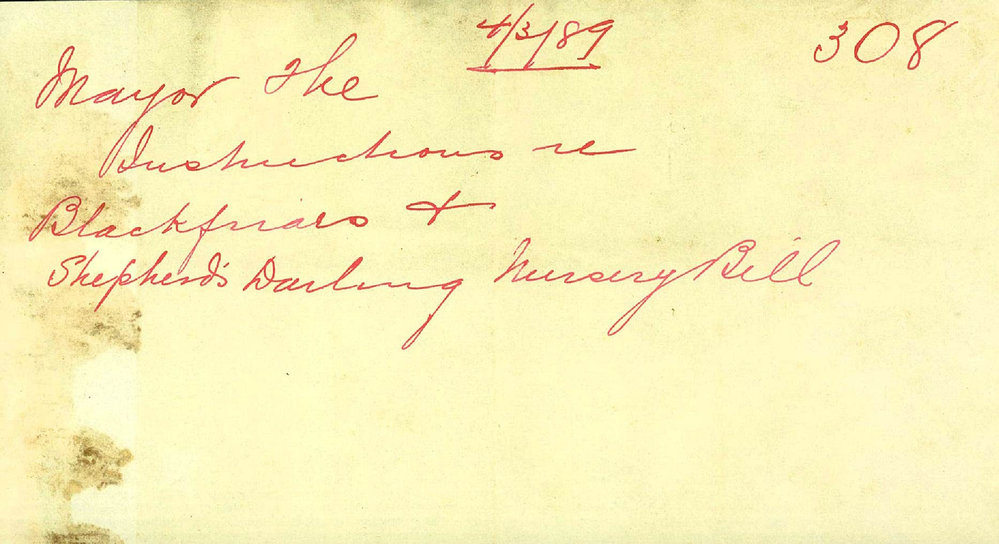 4/3/89
308
Mayor The
Instructions re
Blackfriars &
Shepherd's Darling Nursery Bill